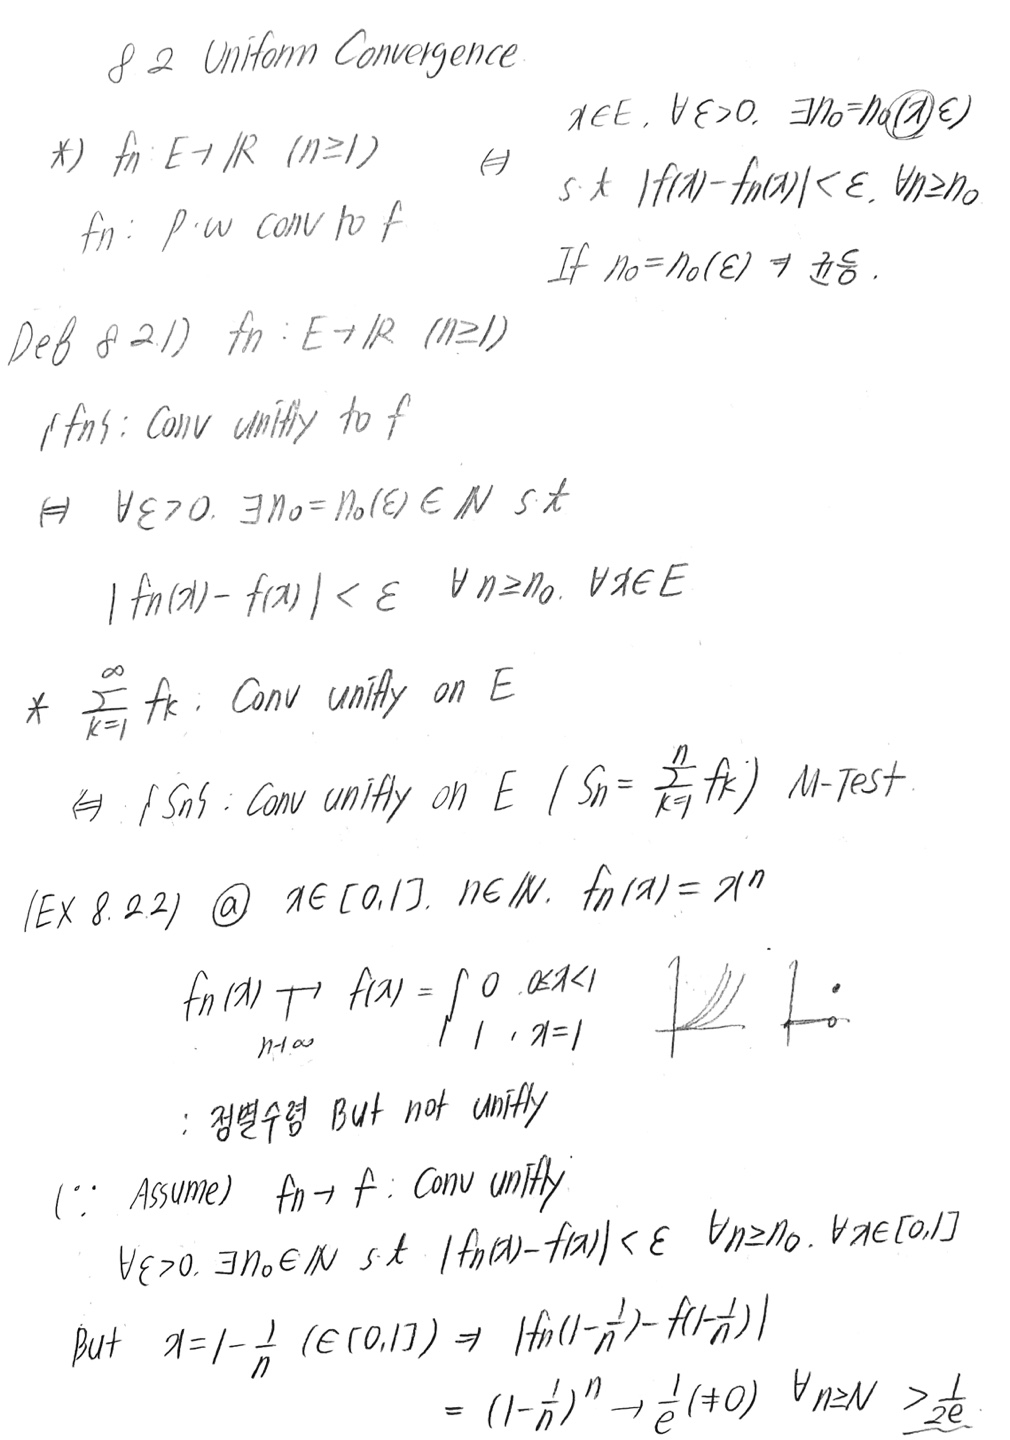 8 2 Uniform Convergence
*) fn : E → ℝ (n≥1)
fn : p.w conv to f
⇔ x∈E, ∀ε>0. ∃n₀=n₀(x,ε)
s.t |f(x)-fn(x)|<ε, ∀n≥n₀
If n₀=n₀(ε) ⇒ 균등.
Def 8 2.1) fn : E→ℝ (n≥1)
{fn} : Conv unifly to f
⇔ ∀ε>0. ∃n₀=n₀(ε)∈ℕ s.t
|fn(x)-f(x)|<ε ∀n≥n₀. ∀x∈E
* ∑_{k=1}^{∞} fk : Conv unifly on E
⇔ {Sn} : Conv unifly on E (Sn = ∑_{k=1}^{n} fk) M-Test.
(EX 8.2.2) ⓐ x∈[0,1]. n∈ℕ. fn(x)=xⁿ
fn(x) →_{n→∞} f(x) = { 0 , 0≤x<1
1 , x=1
: 점별수렴 But not unifly
(∵ Assume) fn→f : Conv unifly
∀ε>0. ∃n₀∈ℕ s.t |fn(x)-f(x)|<ε ∀n≥n₀. ∀x∈[0,1]
But x=1-1/n (∈[0,1]) ⇒ |fn(1-1/n)-f(1-1/n)|
= (1-1/n)ⁿ → 1/e (≠0) ∀n≥N > 1/2e